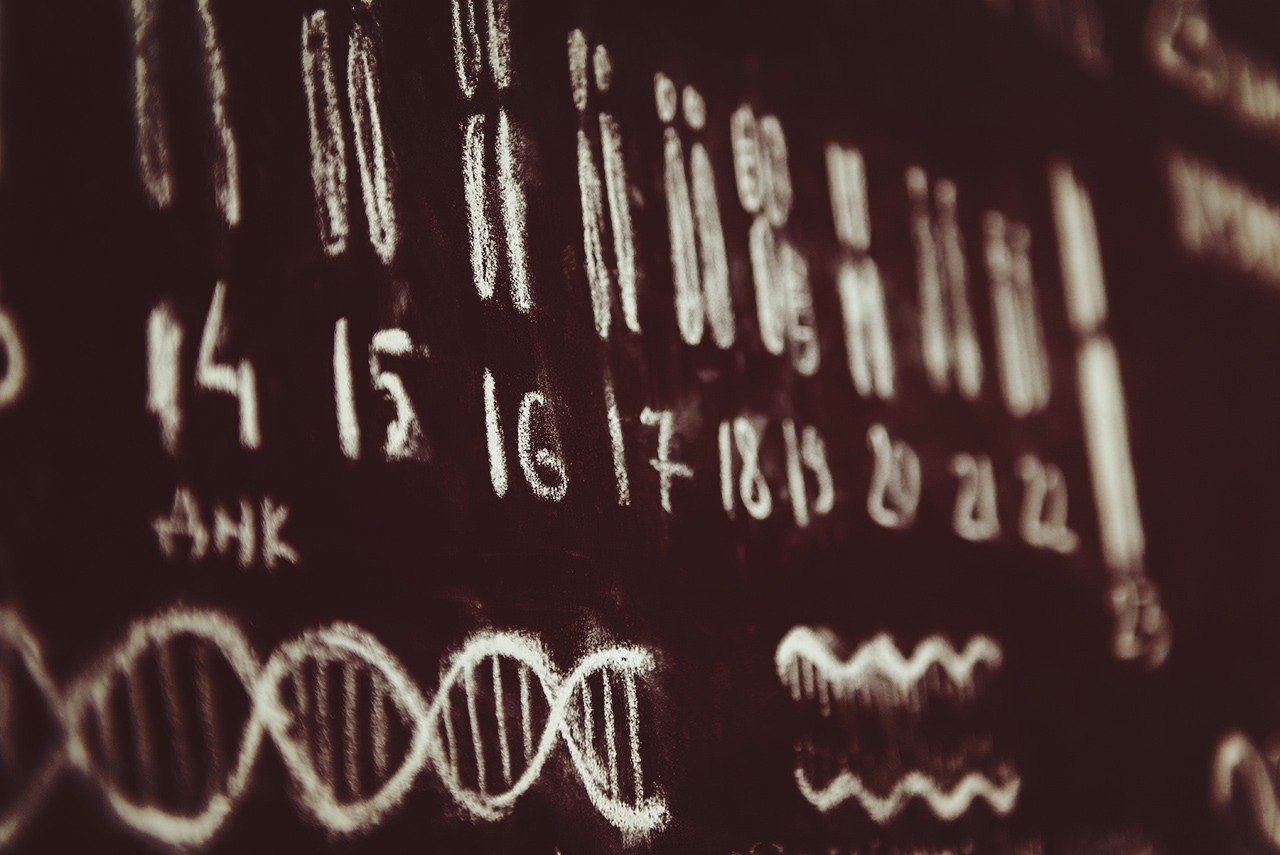 14 15 16 17 18 19 20 21 22
23
ДНК